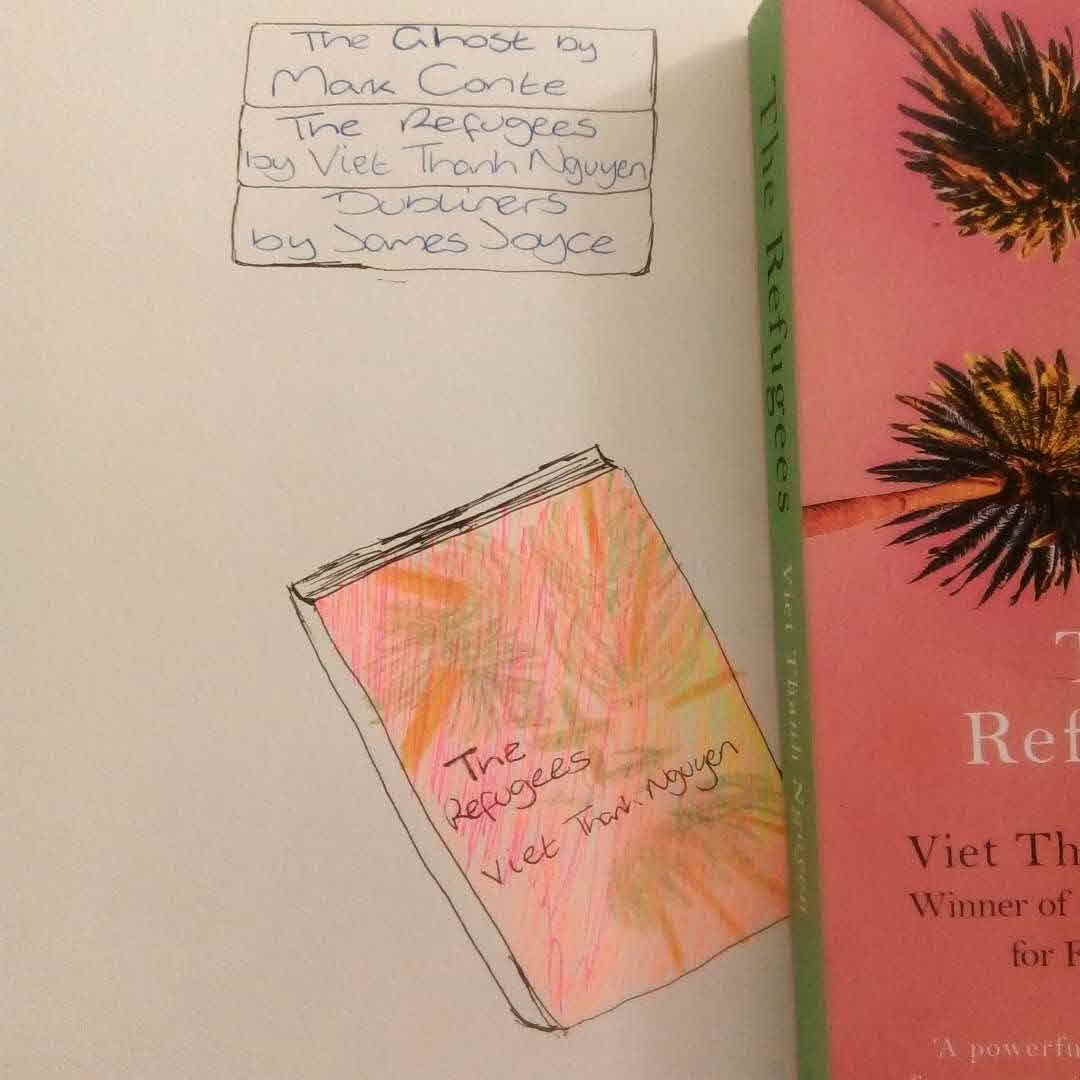 The Ghost by
Mark Conte
The Refugees
by Viet Thanh Nguyen
Dubliners
by James Joyce
The
Refugees
Viet Thanh Nguyen
The Refugees Viet Thanh Nguyen
T
Ref
Viet Th
Winner of
for F
'A powerfu